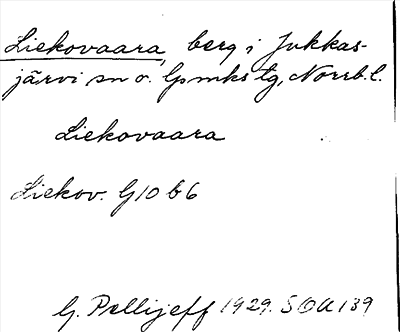 Liekovaara, berg i Jukkas-
järvi sn o. lpmks tg, Norrb. l.
Liekovaara
Liekov. G10 b6
G. Pellijeff 1929. SOA 139